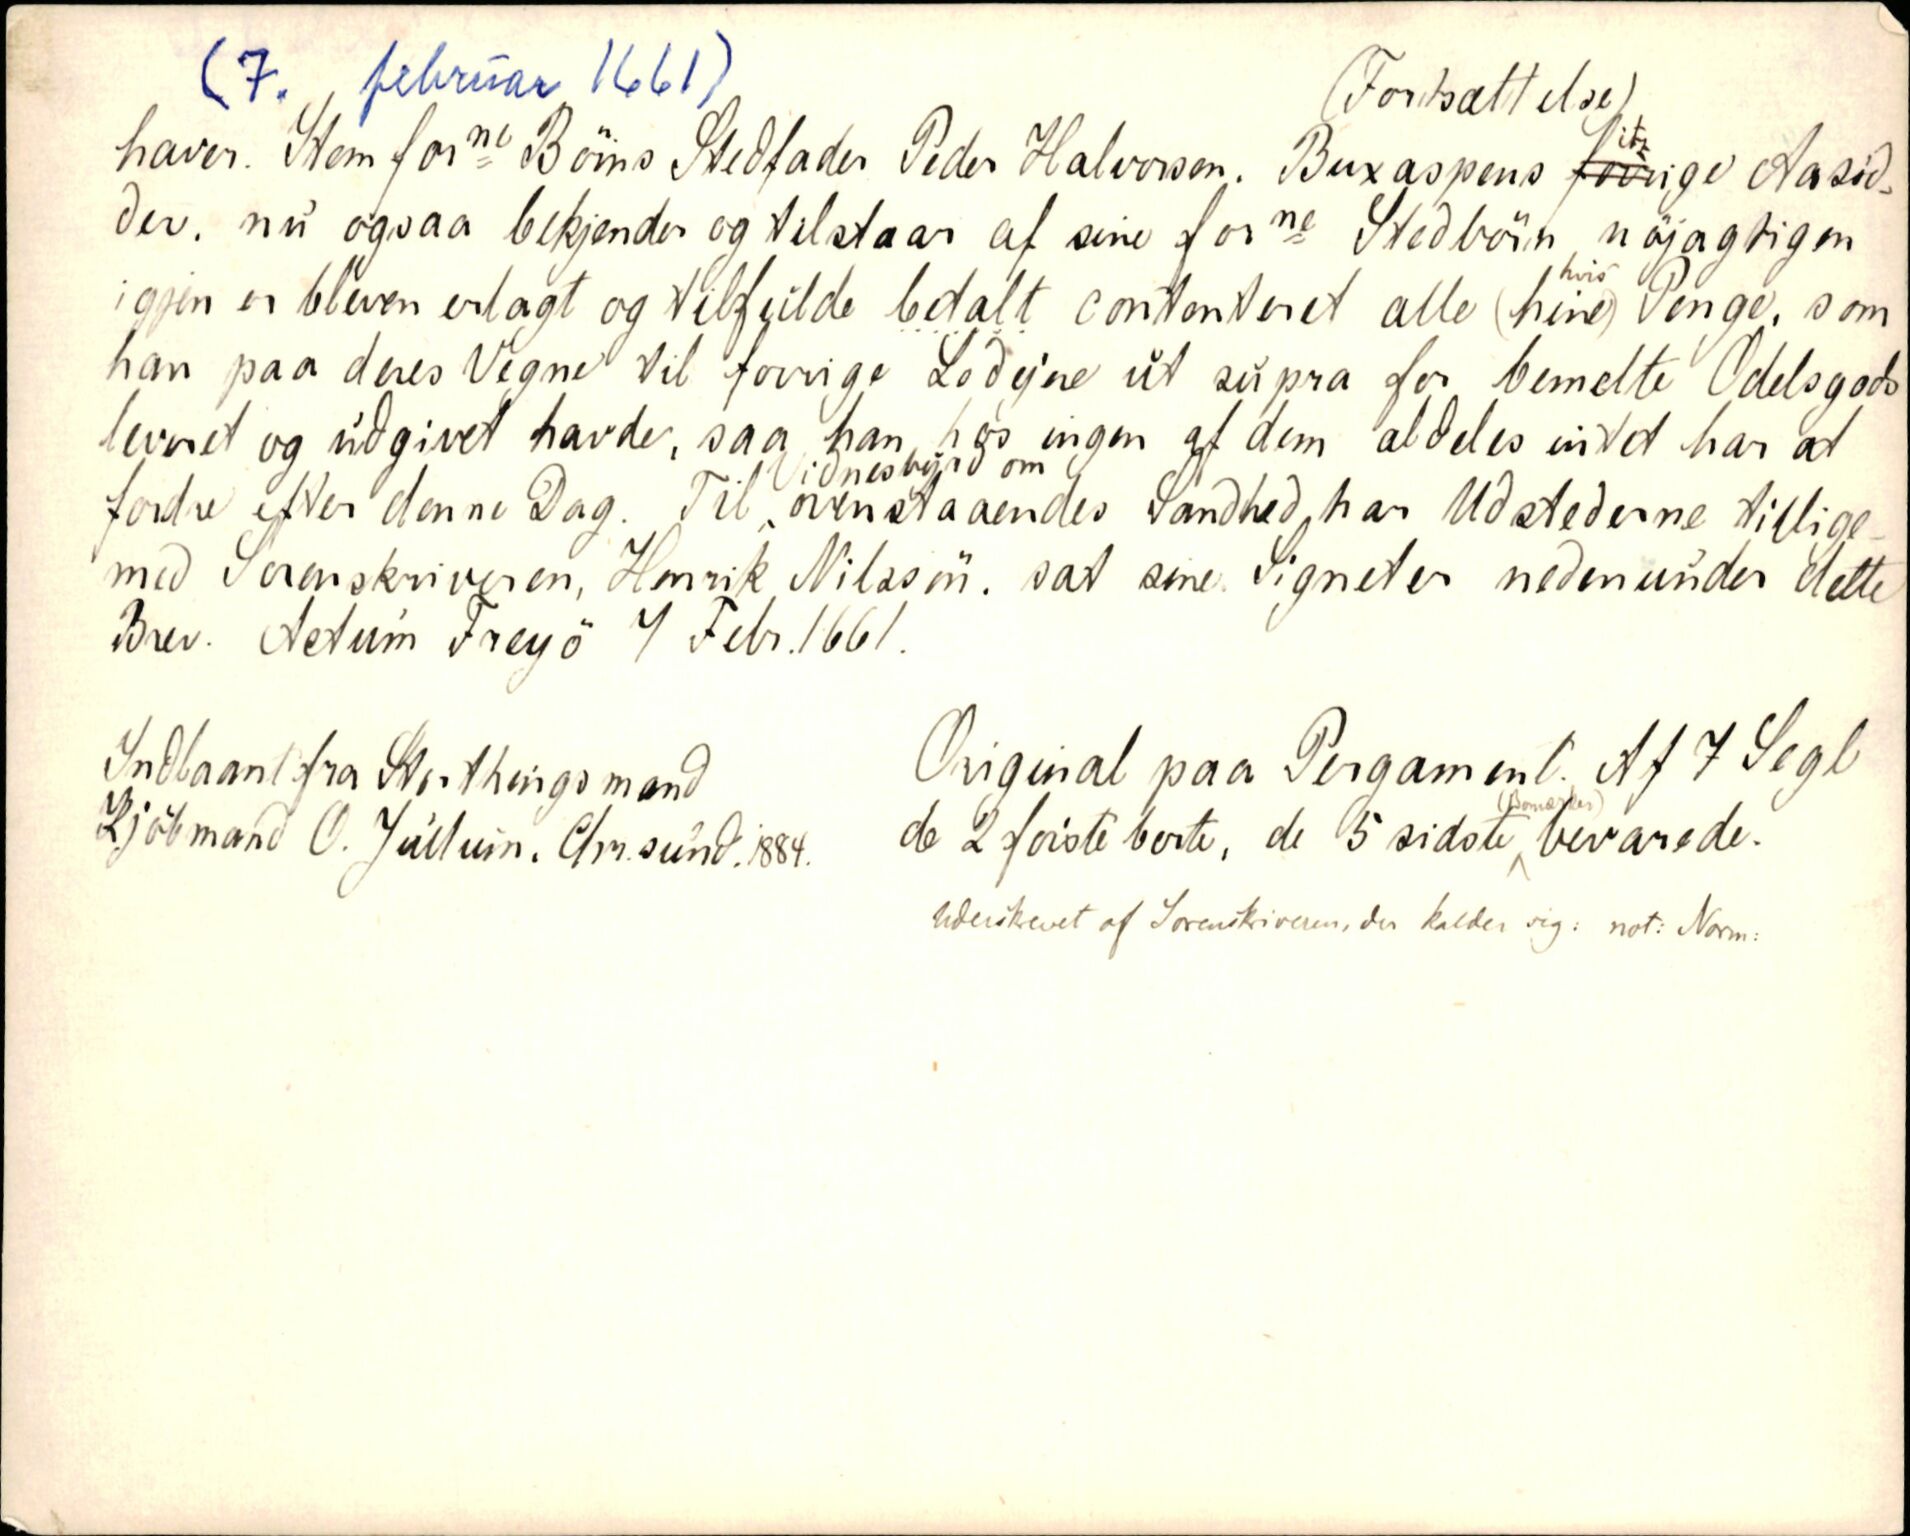 (7. februar 1661)
(Fortsættelse)
haver. Item forne Börns Stedfader Peder Halvorsen. Buxaspens forrige Aasid-
der. nu ogsaa bekjender og tilstaar af sine forne Stedbörn nöjagtigen
igjen er bleven erlagt og tilfulde betalt contenteret alle (hine) hvis Penge, som
han paa deres Vegne til forrige Lodejere ut supra for bemelte Odelsgods
leveret og udgivet havde, saa han hos ingen af dem aldeles intet har at
fordre efter denne Dag. Til Vidnesbyrd om ovenstaaendes Sandhed har Udstederne tillige-
med Sorenskriveren, Henrik Nilssön. sat sine Signeter nedenunder dette
Brev. Actum Freyö 7 Febr. 1661.
Indlaant fra Storthingsmand
Kjöbmand O. Jullum. Chr.sund. 1884.
Original paa Pergament. Af 7 Segl
de 2 förste borte, de 5 sidste (Bomærker) bevarede.
Uderskrevet af Sorenskriveren, der kalder sig: not: Norm: